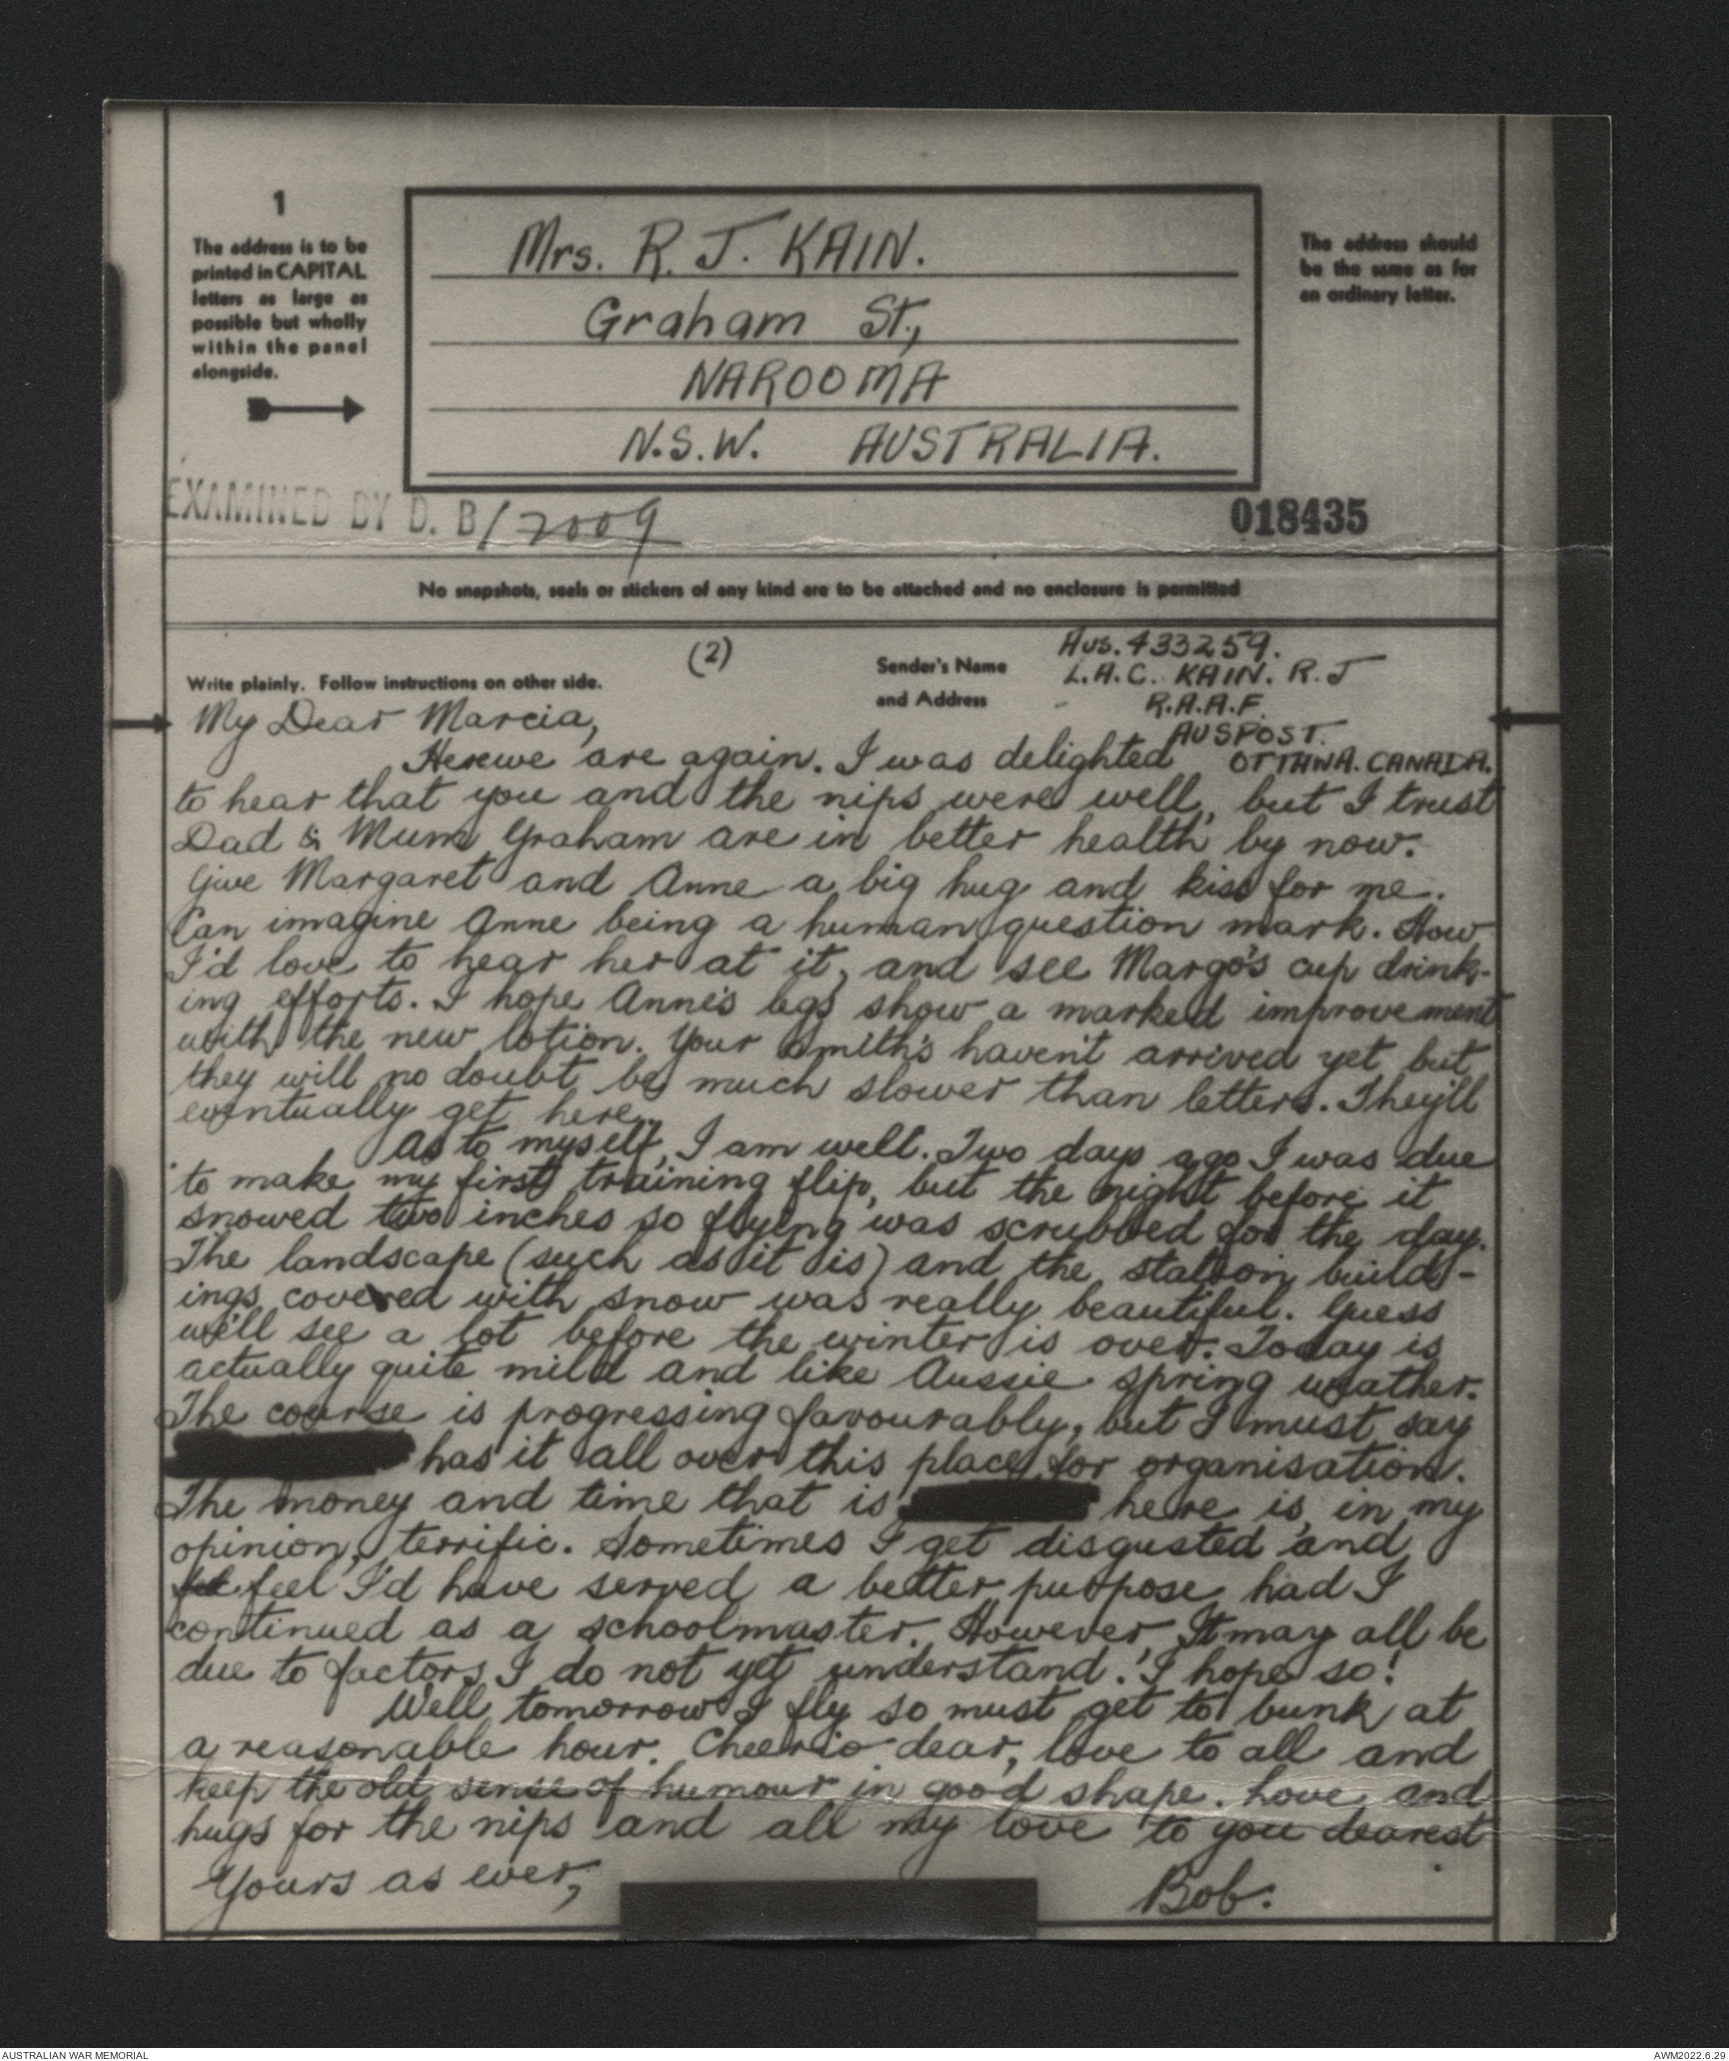 1
The address is to be
printed in CAPITAL
letters as large as
possible but wholly
within the panel
alongside.
Mrs. R. J. KAIN.
Graham St.,
NAROOMA
N.S.W. AUSTRALIA.
The address should
be the same as for
an ordinary letter.
EXAMINED BY D. B/2009
018435
No snapshots, seals or stickers of any kind are to be attached and no enclosure is permitted
(2)
Write plainly. Follow instructions on other side.
Sender's Name
and Address
Aus. 433259.
L.A.C. KAIN. R.J
R.A.A.F.
AUSPOST.
OTTAWA. CANADA.
My Dear Marcia,
Herewe are again. I was delighted
to hear that you and the nips were well, but I trust
Dad & Mum Graham are in better health by now.
Give Margaret and Anne a big hug and kiss for me.
Can imagine Anne being a human question mark. How
I'd love to hear her at it, and see Margo's cup drink-
ing efforts. I hope Anne's legs show a marked improvement
with the new lotion. Your Smith's haven't arrived yet but
they will no doubt be much slower than letters. They'll
eventually get here.
As to myself, I am well. Two days ago I was due
to make my first training flip, but the night before it
snowed two inches so flying was scrubbed for the day.
The landscape (such as it is) and the station build-
ings covered with snow was really beautiful. Guess
we'll see a lot before the winter is over. Today is
actually quite mild and like Aussie spring weather.
The course is progressing favourably, but I must say
has it all over this place for organisation.
The money and time that is here is, in my
opinion, terrific. Sometimes I get disgusted and
feel I'd have served a better purpose had I
continued as a schoolmaster. However, It may all be
due to factors I do not yet understand. I hope so!
Well, tomorrow I fly so must get to bunk at
a reasonable hour. Cheerio dear, love to all and
keep the old sense of humour in good shape. Love and
hugs for the nips and all my love to you dearest
Yours as ever,
Bob.
AUSTRALIAN WAR MEMORIAL
AWM2022.6.29